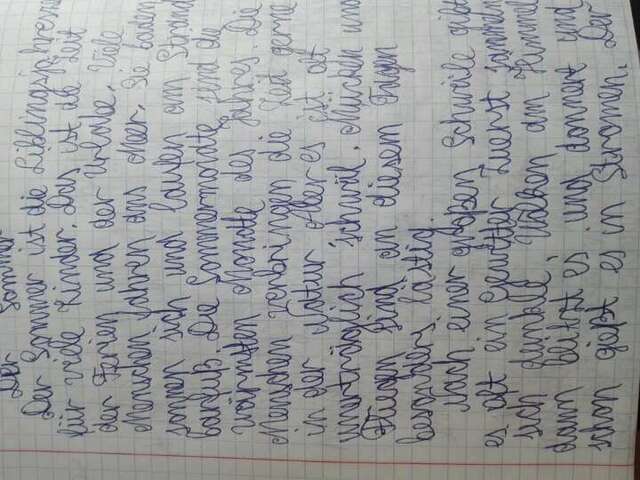 Der Sommer
Der Sommer ist die Lieblingsjahresze
für viele Kinder. Das ist die Zeit
der Ferien und der Urlaube. Viele
Menschen fahren ans Meer. Sie baden
sonnen sich und laufen am Strand
barfuß. Die Sommermonate sind die
wärmsten Monate des Jahres. Die
Menschen verbringen die Zeit gerne
in der Natur. Aber es ist oft
unerträglich schwül. Mücken und
Fliegen sind an diesem Tagen
besonders lästig.
Nach einer großen Schwüle gibt
es oft ein Gewitter. Zuerst sammeln
sich dunkle Wolken am Himmel
dann blitzt es und donnert und
schon gießt es in Strömen. Der